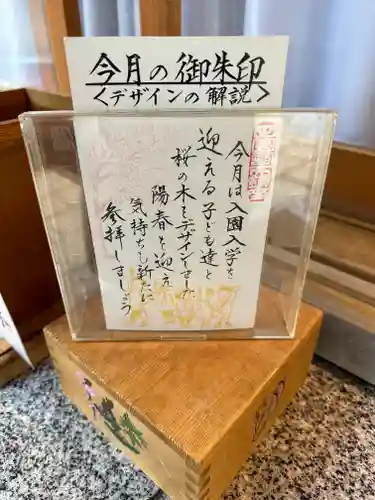 今月の御朱印
<デザインの解説>
今月は入園入学を
迎える子ども達と
桜の木をデザインしました
陽春を迎え
気持ちも新たに
参拝しましょう